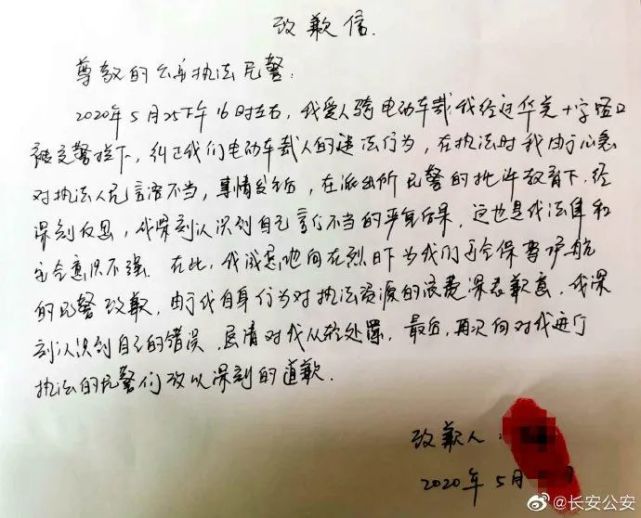 致歉信.
尊敬的公安执法民警:
2020年5月25下午16时左右,我爱人骑电动车载我经过华美十字路口
被交警拦下,纠正我们电动车载人的违法行为,在执法时我由于心急
对执法人员言语不当,事情发生后,在派出所民警的批评教育下.经
深刻反思,我深刻认识到自己言行不当的严重后果,这也是我法律和
安全意识不强.在此,我诚恳地向在烈日下为我们安全保驾护航
的民警致歉,由于我自身行为对执法资源的浪费深表歉意,我深
刻认识到自己的错误.恳请对我从轻处罚,最后,再次向对我进行
执法的民警们致以深刻的道歉.
致歉人:
2020年5月
@长安公安